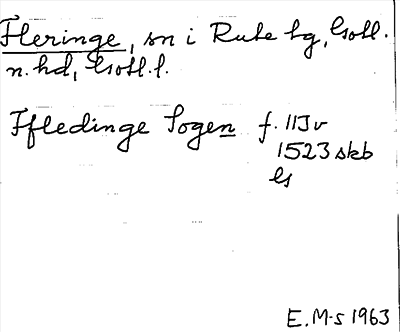 Fleringe, sn i Rute tg, Gotl.
n. hd, Gotl. l.
Ffledinge Sogen f. 113v
1523 skb
Gs
E. M-s 1963